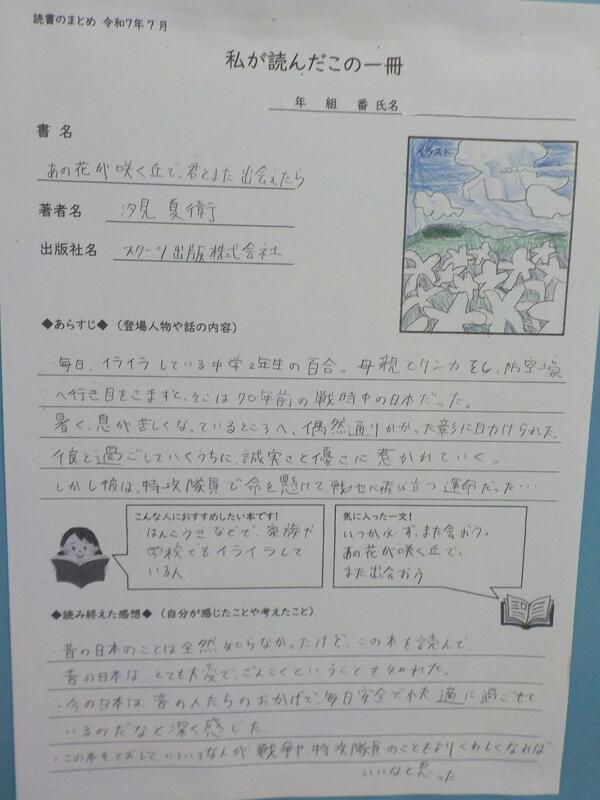 読書のまとめ 令和7年7月
私が読んだこの一冊
年 組 番 氏名
書 名
あの花が咲く丘で、君とまた出会えたら
イラスト
著者名 汐見 夏衛
出版社名 スターツ出版株式会社
◆あらすじ◆ (登場人物や話の内容)
・毎日、イライラしている中学2年生の百合。母親とケンカをし、防空壕
へ行き目をさますと、そこは70年前の戦時中の日本だった。
暑く、息が苦しくなっているところへ、偶然通りかかった彰に助けられた。
彼と過ごしていくうちに、誠実さと優さに惹かれていく。
しかし彼は、特攻隊員で命を懸けて戦地に飛び立つ運命だった…
こんな人におすすめしたい本です!
はんこうきなどで、家族や
学校でもイライラして
いる人
気に入った一文!
いつか必ず、また会おう。
あの花が咲く丘で、
また出会おう
◆読み終えた感想◆ (自分が感じたことや考えたこと)
・昔の日本のことは全然知らなかったけど、この本を読んで、
昔の日本は、とても大変で、ざんこくということを知れた。
・今の日本は、昔の人たちのおかげで、毎日安全で快適に過ごせて
いるのだなと深く感じた。
・この本をとおして、いろいろな人が戦争や、特攻隊員のこともよりくわしくなれば
いいなと思った